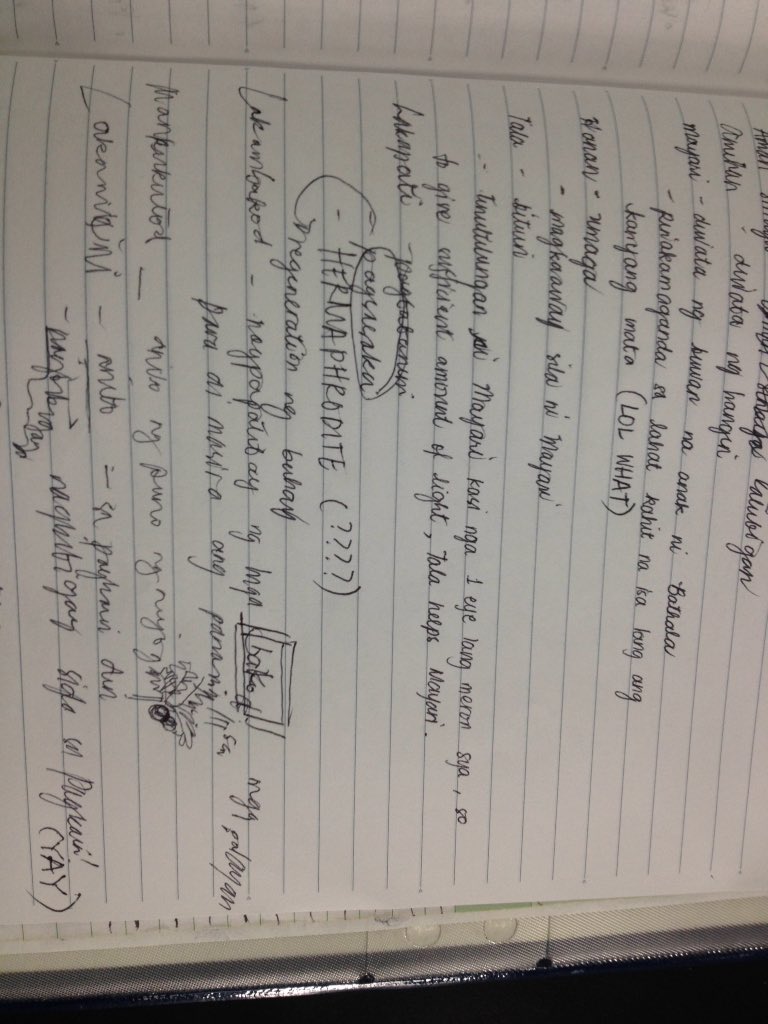 Aman
Dimihan - diwata ng hangin
Mayari - diwata ng buwan na anak ni Bathala
- pinakamaganda sa lahat kahit na isa lang ang
kanyang mata (LOL WHAT)
Hanan - umaga
- magkaaway sila ni Mayari
Tala - bituin
∴ tinutulungan si Mayari kasi nga 1 eye lang meron sya, so
to give sufficient amount of light, Tala helps Mayari.
Lakapati - pagtatanim
pagsasaka
- HERMAPHRODITE (????)
regeneration ng buhay
Lakambakod - nagpapatibay ng mga bakod mga palayan
para di masira ang pananim
Mankukutod - anito ng puno ng niyog
Lakanbini - anito - sa pagkain din
- nagbibigay sigla sa pagkain! (YAY)